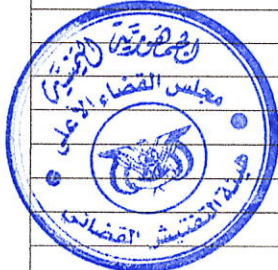 الجمهورية اليمنية
مجلس القضاء الأعلى
هيئة التفتيش القضائي